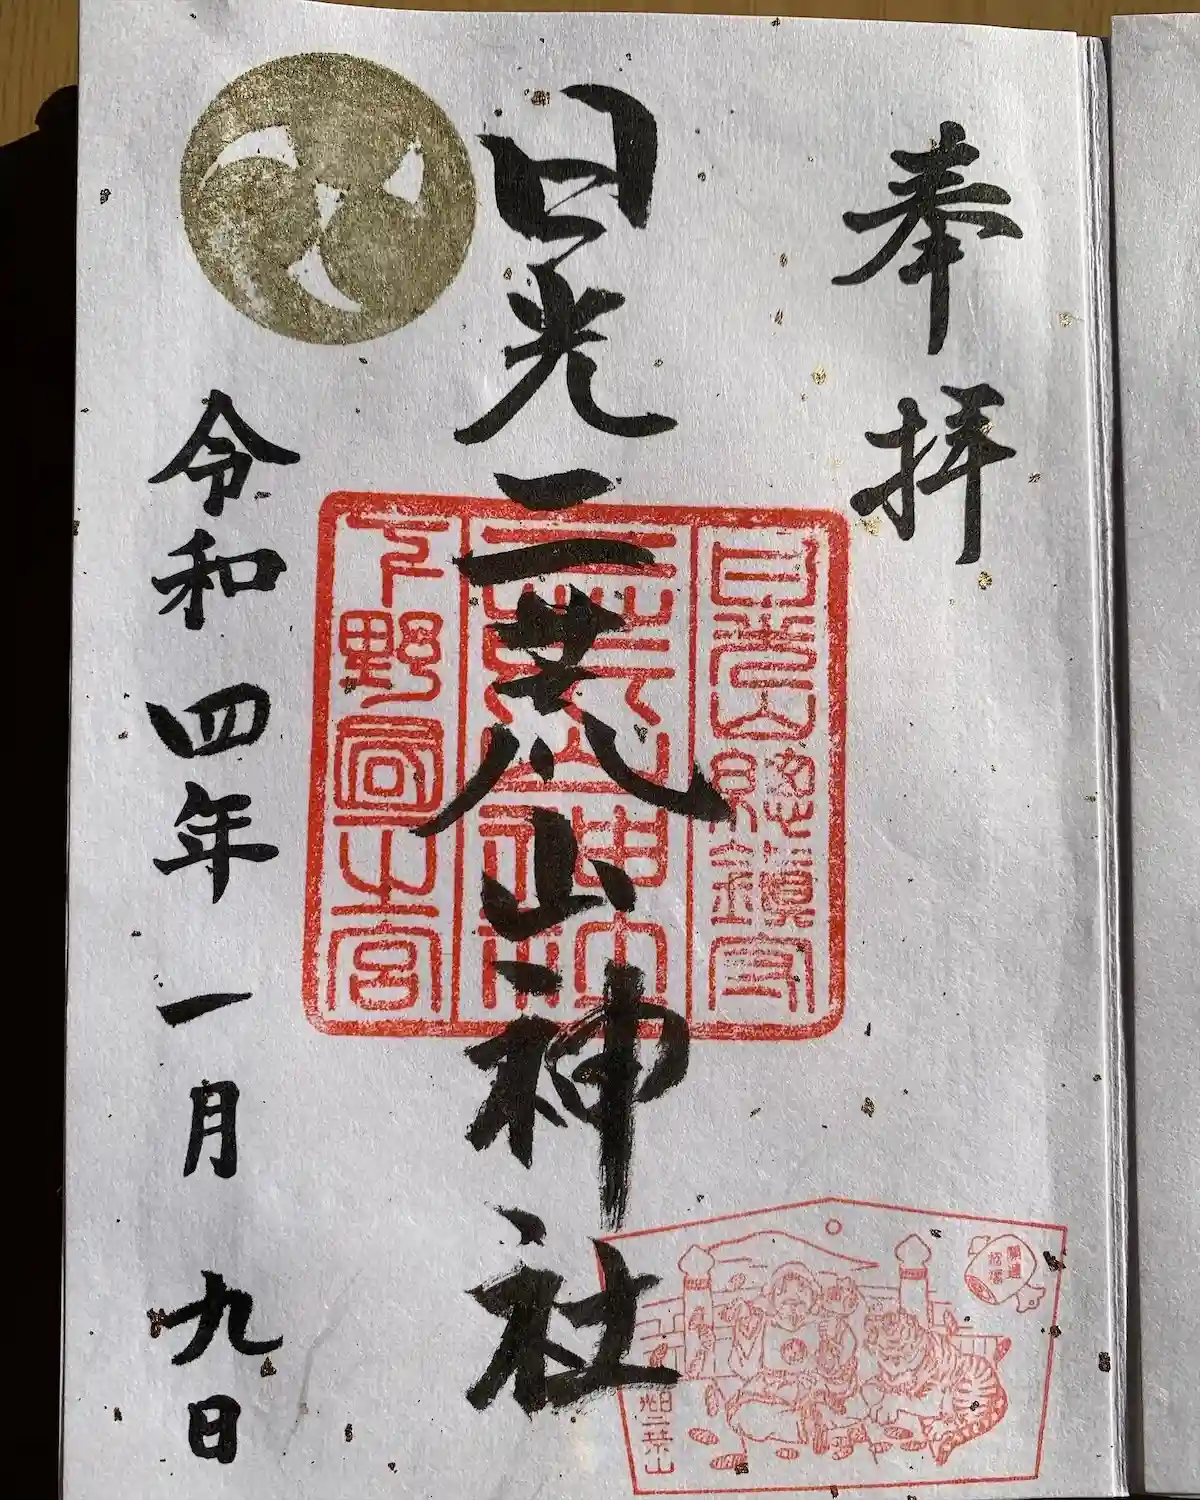 奉拝
日光二荒山神社
令和四年一月九日
日光山總鎮守
下野國一之宮
開運
招福
日光二荒山